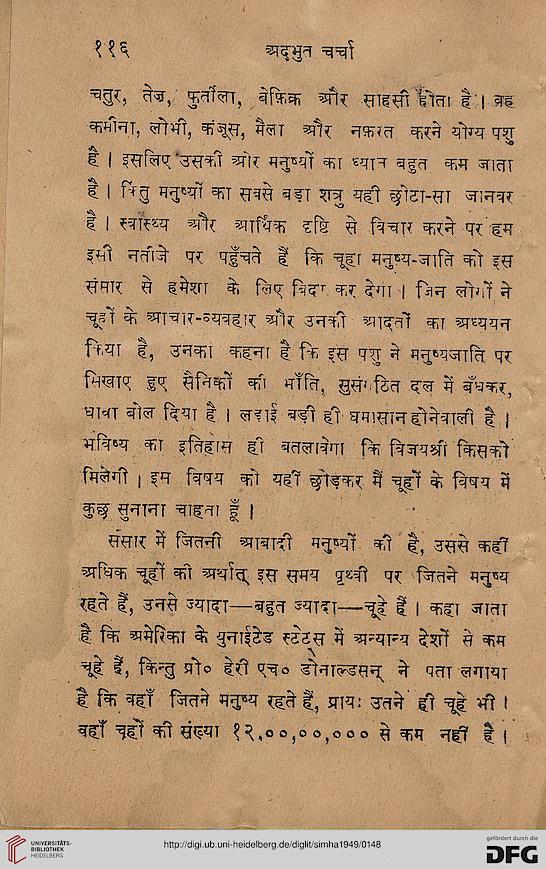 ११६ अद्भुत चर्चा
चतुर, तेज़, फुर्तीला, बेफ़िक्र और साहसी होता है । वह
कमीना, लोभी, कंजूस, मैला और नफ़रत करने योग्य पशु
है । इसलिए उसकी ओर मनुष्यों का ध्यान बहुत कम जाता
है । किंतु मनुष्यों का सबसे बड़ा शत्रु यही छोटा-सा जानवर
है । स्वास्थ्य और आर्थिक दृष्टि से विचार करने पर हम
इसी नतीजे पर पहुँचते हैं कि चूहा मनुष्य-जाति को इस
संसार से हमेशा के लिए विदा कर देगा । जिन लोगों ने
चूहों के आचार-व्यवहार और उनकी आदतों का अध्ययन
किया है, उनका कहना है कि इस पशु ने मनुष्यजाति पर
सिखाए हुए सैनिकों की भाँति, सुसंगठित दल में बँधकर,
धावा बोल दिया है । लड़ाई बड़ी ही घमासान होनेवाली है ।
भविष्य का इतिहास ही बतलावेगा कि विजयश्री किसको
मिलेगी । इस विषय को यहीं छोड़कर मैं चूहों के विषय में
कुछ सुनाना चाहता हूँ ।
संसार में जितनी आबादी मनुष्यों की है, उससे कहीं
अधिक चूहों की अर्थात् इस समय पृथ्वी पर जितने मनुष्य
रहते हैं, उनसे ज्यादा—बहुत ज्यादा—चूहे हैं । कहा जाता
है कि अमेरिका के युनाईटेड स्टेट्स् में अन्यान्य देशों से कम
चूहे हैं, किन्तु प्रो० हेरी एच० डोनाल्डसन् ने पता लगाया
है कि वहाँ जितने मनुष्य रहते हैं, प्रायः उतने ही चूहे भी ।
वहाँ चूहों की संख्या १२,००,००,००० से कम नहीं है ।
UNIVERSITÄTS-
BIBLIOTHEK
HEIDELBERG
http://digi.ub.uni-heidelberg.de/diglit/simha1949/0148
gefördert durch die
DFG